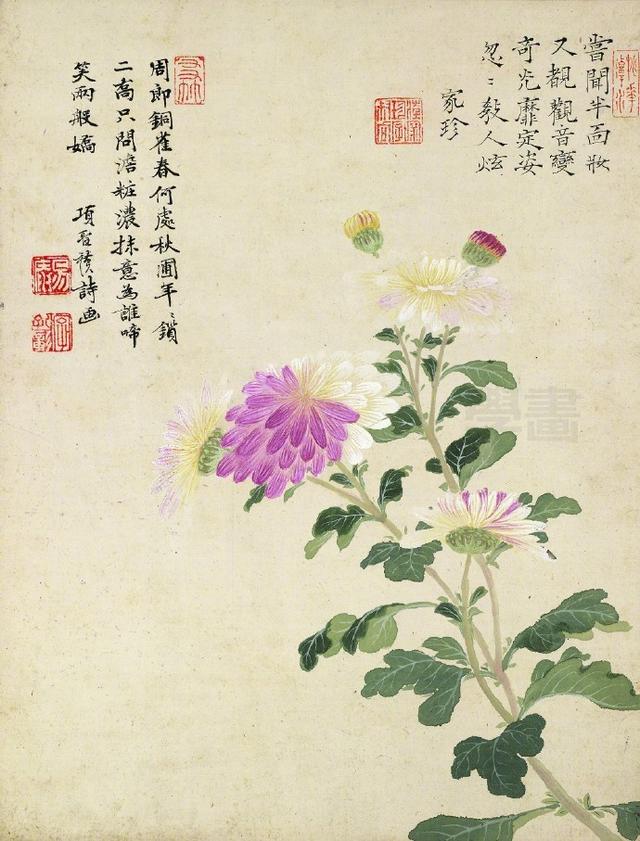 嘗聞半面妝
又覩觀音變
奇光靡定姿
忽〻教人炫
家珍
周郎銅雀春何處秋圃年〻鎖
二喬只問澹粧濃抹意為誰啼
笑兩般嬌
項聖謨詩画
學畫